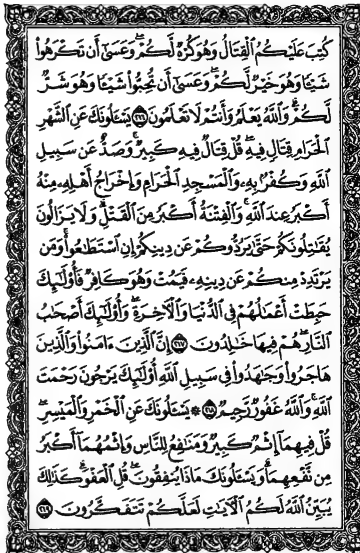 كُتِبَ عَلَيْكُمُ ٱلْقِتَالُ وَهُوَ كُرْهٌ لَّكُمْ ۖ وَعَسَىٰٓ أَن تَكْرَهُوا۟
شَيْـًٔا وَهُوَ خَيْرٌ لَّكُمْ ۖ وَعَسَىٰٓ أَن تُحِبُّوا۟ شَيْـًٔا وَهُوَ شَرٌّ
لَّكُمْ ۗ وَٱللَّهُ يَعْلَمُ وَأَنتُمْ لَا تَعْلَمُونَ ۝٢١٦ يَسْـَٔلُونَكَ عَنِ ٱلشَّهْرِ
ٱلْحَرَامِ قِتَالٍ فِيهِ ۖ قُلْ قِتَالٌ فِيهِ كَبِيرٌ ۖ وَصَدٌّ عَن سَبِيلِ
ٱللَّهِ وَكُفْرٌۢ بِهِۦ وَٱلْمَسْجِدِ ٱلْحَرَامِ وَإِخْرَاجُ أَهْلِهِۦ مِنْهُ
أَكْبَرُ عِندَ ٱللَّهِ ۚ وَٱلْفِتْنَةُ أَكْبَرُ مِنَ ٱلْقَتْلِ ۗ وَلَا يَزَالُونَ
يُقَـٰتِلُونَكُمْ حَتَّىٰ يَرُدُّوكُمْ عَن دِينِكُمْ إِنِ ٱسْتَطَـٰعُوا۟ ۚ وَمَن
يَرْتَدِدْ مِنكُمْ عَن دِينِهِۦ فَيَمُتْ وَهُوَ كَافِرٌ فَأُو۟لَـٰٓئِكَ
حَبِطَتْ أَعْمَـٰلُهُمْ فِى ٱلدُّنْيَا وَٱلْـَٔاخِرَةِ ۖ وَأُو۟لَـٰٓئِكَ أَصْحَـٰبُ
ٱلنَّارِ ۖ هُمْ فِيهَا خَـٰلِدُونَ ۝٢١٧ إِنَّ ٱلَّذِينَ ءَامَنُوا۟ وَٱلَّذِينَ
هَاجَرُوا۟ وَجَـٰهَدُوا۟ فِى سَبِيلِ ٱللَّهِ أُو۟لَـٰٓئِكَ يَرْجُونَ رَحْمَتَ
ٱللَّهِ ۚ وَٱللَّهُ غَفُورٌ رَّحِيمٌ ۝٢١٨ ۞ يَسْـَٔلُونَكَ عَنِ ٱلْخَمْرِ وَٱلْمَيْسِرِ ۖ
قُلْ فِيهِمَآ إِثْمٌ كَبِيرٌ وَمَنَـٰفِعُ لِلنَّاسِ وَإِثْمُهُمَآ أَكْبَرُ
مِن نَّفْعِهِمَا ۗ وَيَسْـَٔلُونَكَ مَاذَا يُنفِقُونَ قُلِ ٱلْعَفْوَ ۗ كَذَٰلِكَ
يُبَيِّنُ ٱللَّهُ لَكُمُ ٱلْـَٔايَـٰتِ لَعَلَّكُمْ تَتَفَكَّرُونَ ۝٢١٩